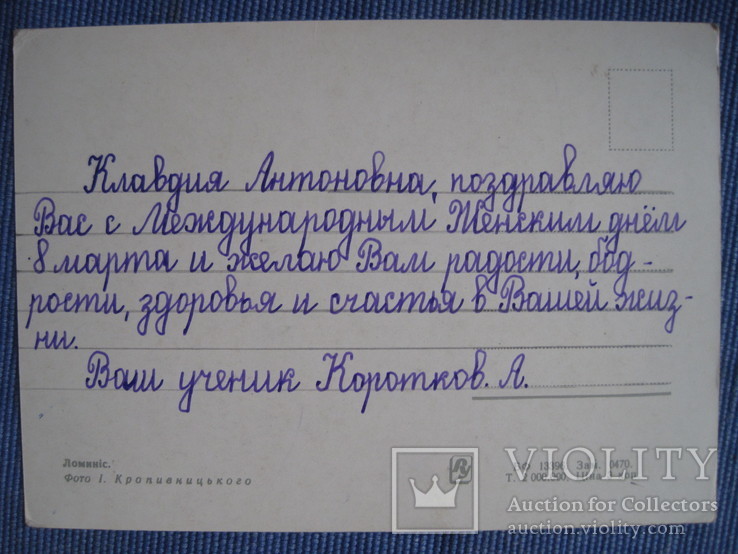 Клавдия Антоновна, поздравляю
Вас с Международным Женским днём
8 марта и желаю Вам радости, бод-
рости, здоровья и счастья в Вашей жиз-
ни.
Ваш ученик Коротков. А.
Ломиніс.
Фото І. Кропивницького
13396. Зам. 0470.
Т. 2 000 000. Ціна
VIOLITY
Auction for Collectors
auction.violity.com